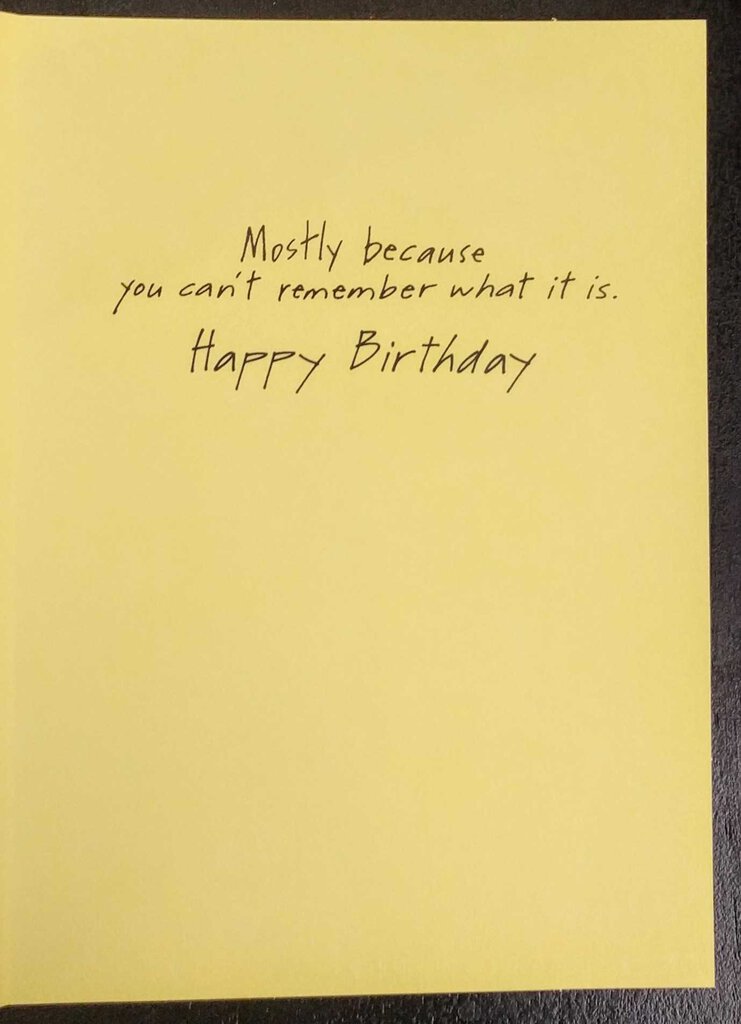 Mostly because
you can't remember what it is.
Happy Birthday